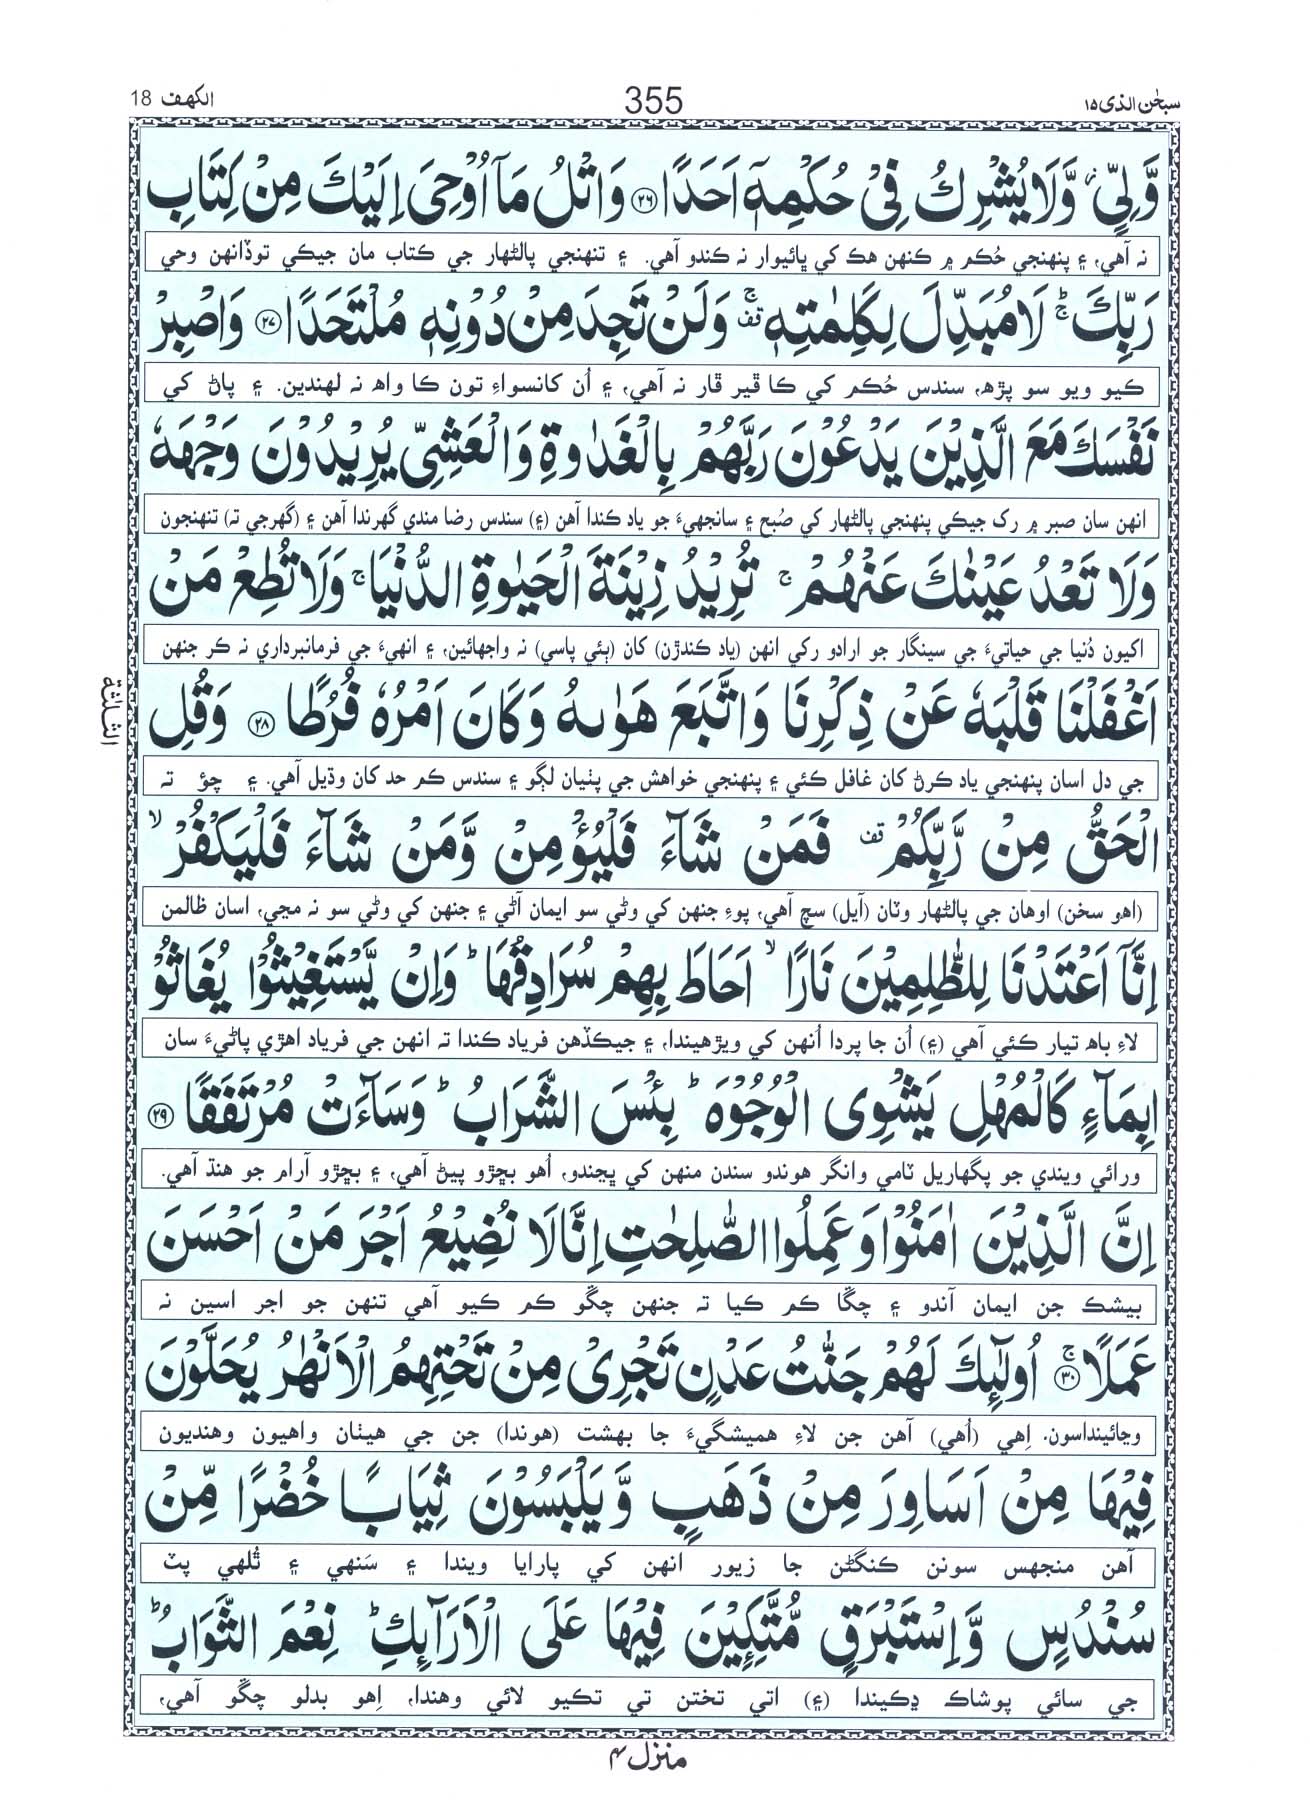 سبحٰن الذی ۱۵
355
الکھف 18
وَّلِیٍّ ؗ وَّلَا یُشْرِكُ فِیْ حُكْمِهٖۤ اَحَدًا ۝۲۶ وَاتْلُ مَاۤ اُوْحِیَ اِلَیْكَ مِنْ كِتَابِ
نہ آھي، ۽ پنھنجي حُڪم ۾ ڪنھن ھڪ کي ڀائيوار نہ ڪندو آھي. ۽ تنھنجي پالڻھار جي ڪتاب مان جيڪي توڏانھن وحي
رَبِّكَ ؕۚ لَا مُبَدِّلَ لِكَلِمٰتِهٖ ۚ۫ وَلَنْ تَجِدَ مِنْ دُوْنِهٖ مُلْتَحَدًا ۝۲۷ وَاصْبِرْ
ڪيو ويو سو پڙھ، سندس حُڪم کي ڪا ڦير ڦار نہ آھي، ۽ اُن کانسواءِ تون ڪا واھ نہ لھندين. ۽ پاڻ کي
نَفْسَكَ مَعَ الَّذِیْنَ یَدْعُوْنَ رَبَّهُمْ بِالْغَدٰوةِ وَالْعَشِیِّ یُرِیْدُوْنَ وَجْهَهٗ
انھن سان صبر ۾ رک جيڪي پنھنجي پالڻھار کي صُبح ۽ سانجھيءَ جو ياد ڪندا آھن (۽) سندس رضا مندي گھرندا آھن ۽ (گھرجي تہ) تنھنجون
وَلَا تَعْدُ عَیْنٰكَ عَنْهُمْ ۚ تُرِیْدُ زِیْنَةَ الْحَیٰوةِ الدُّنْیَا ۚ وَلَا تُطِعْ مَنْ
اکيون دُنيا جي حياتيءَ جي سينگار جو ارادو رکي انھن (ياد ڪندڙن) کان (ٻئي پاسي) نہ واجھائين، ۽ انھيءَ جي فرمانبرداري نہ ڪر جنھن
اَغْفَلْنَا قَلْبَهٗ عَنْ ذِكْرِنَا وَاتَّبَعَ هَوٰىهُ وَكَانَ اَمْرُهٗ فُرُطًا ۝۲۸ وَقُلِ
الثلٰثة
جي دل اسان پنھنجي ياد ڪرڻ کان غافل ڪئي ۽ پنھنجي خواھش جي پٺيان لڳو ۽ سندس ڪم حد کان وڌيل آھي. ۽ چؤ تہ
الْحَقُّ مِنْ رَّبِّكُمْ ۫ فَمَنْ شَآءَ فَلْیُؤْمِنْ وَّمَنْ شَآءَ فَلْیَكْفُرْ ۙ
(اھو سخن) اوھان جي پالڻھار وٽان (آيل) سچ آھي، پوءِ جنھن کي وڻي سو ايمان آڻي ۽ جنھن کي وڻي سو نہ مڃي، اسان ظالمن
اِنَّاۤ اَعْتَدْنَا لِلظّٰلِمِیْنَ نَارًا ۙ اَحَاطَ بِهِمْ سُرَادِقُهَا ؕ وَاِنْ یَّسْتَغِیْثُوْا یُغَاثُوْ
لاءِ باھ تيار ڪئي آھي (۽) اُن جا پردا اُنھن کي ويڙھيندا، ۽ جيڪڏھن فرياد ڪندا تہ انھن جي فرياد اھڙي پاڻيءَ سان
ا بِمَآءٍ كَالْمُهْلِ یَشْوِی الْوُجُوْهَ ؕ بِئْسَ الشَّرَابُ ؕ وَسَآءَتْ مُرْتَفَقًا ۝۲۹
ورائي ويندي جو پگھاريل ٽامي وانگر ھوندو سندن منھن کي ڀڃندو، اُھو بڇڙو پيڻ آھي، ۽ بڇڙو آرام جو ھنڌ آھي.
اِنَّ الَّذِیْنَ اٰمَنُوْا وَعَمِلُوا الصّٰلِحٰتِ اِنَّا لَا نُضِیْعُ اَجْرَ مَنْ اَحْسَنَ
بيشڪ جن ايمان آندو ۽ چڱا ڪم ڪيا تہ جنھن چڱو ڪم ڪيو آھي تنھن جو اجر اسين نہ
عَمَلًا ۝۳۰ ۚ اُولٰٓىِٕكَ لَهُمْ جَنّٰتُ عَدْنٍ تَجْرِیْ مِنْ تَحْتِهِمُ الْاَنْهٰرُ یُحَلَّوْنَ
وڃائينداسون. اِھي (اُھي) آھن جن لاءِ ھميشگيءَ جا بھشت (ھوندا) جن جي ھيٺان واھيون وھنديون
فِیْهَا مِنْ اَسَاوِرَ مِنْ ذَهَبٍ وَّیَلْبَسُوْنَ ثِیَابًا خُضْرًا مِّنْ
آھن منجھس سونن ڪنگڻن جا زيور انھن کي پارايا ويندا ۽ سَنھي ۽ ٿُلھي پٽ
سُنْدُسٍ وَّاِسْتَبْرَقٍ مُّتَّكِـِٕیْنَ فِیْهَا عَلَی الْاَرَآىِٕكِ ؕ نِعْمَ الثَّوَابُ ؕ
جي سائي پوشاڪ ڍڪيندا (۽) اتي تختن تي تڪيو لائي وھندا، اِھو بدلو چڱو آھي،
منزل ۴